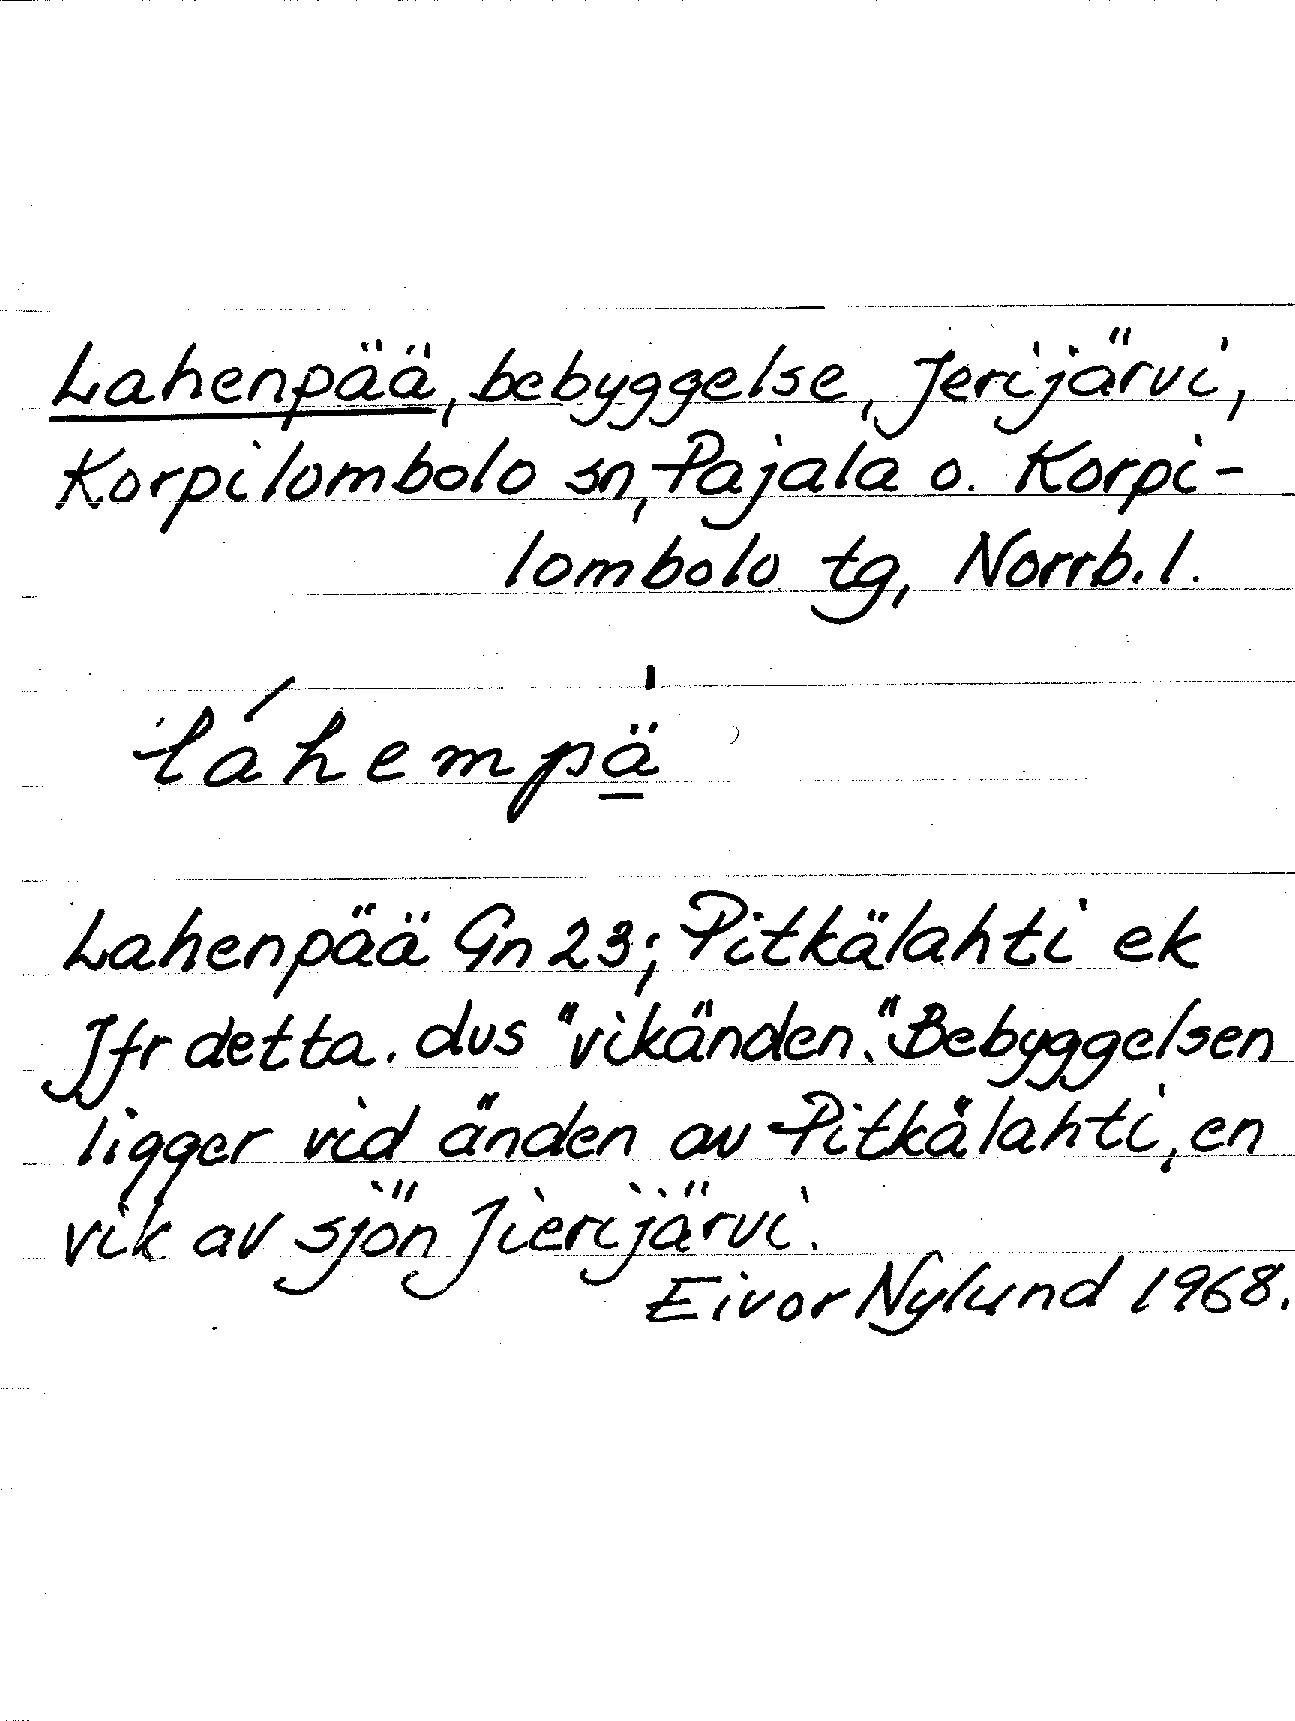 Lahenpää, bebyggelse, Jerijärvi,
Korpilombolo sn, Pajala o. Korpi-
lombolo tg, Norrb. l.
láhempä̱
Lahenpää Gn 23; Pitkälahti ek
Jfr detta. dvs "vikänden." Bebyggelsen
ligger vid änden av Pitkälahti, en
vik av sjön Jierijärvi.
Eivor Nylund 1968.